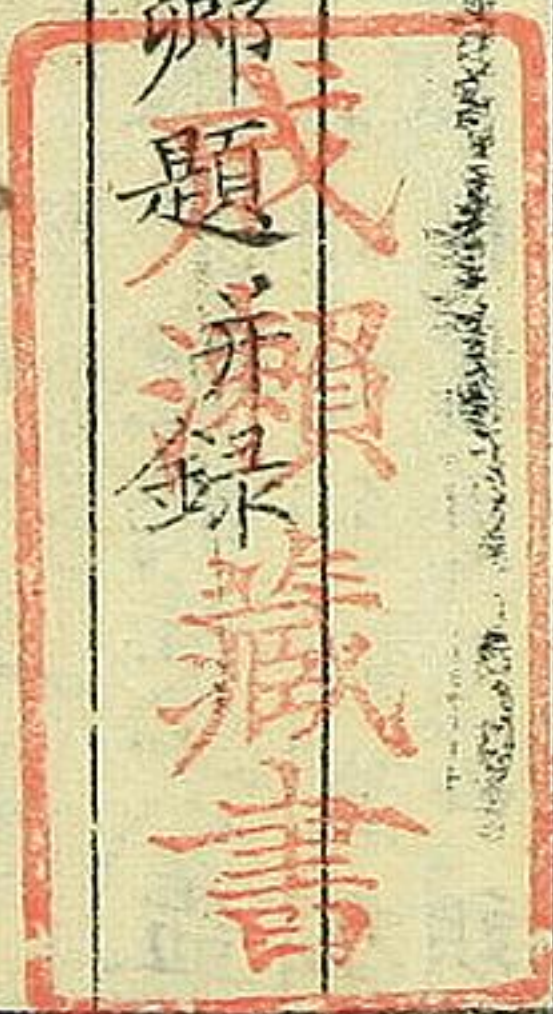 卿題并録
成瀬藏書